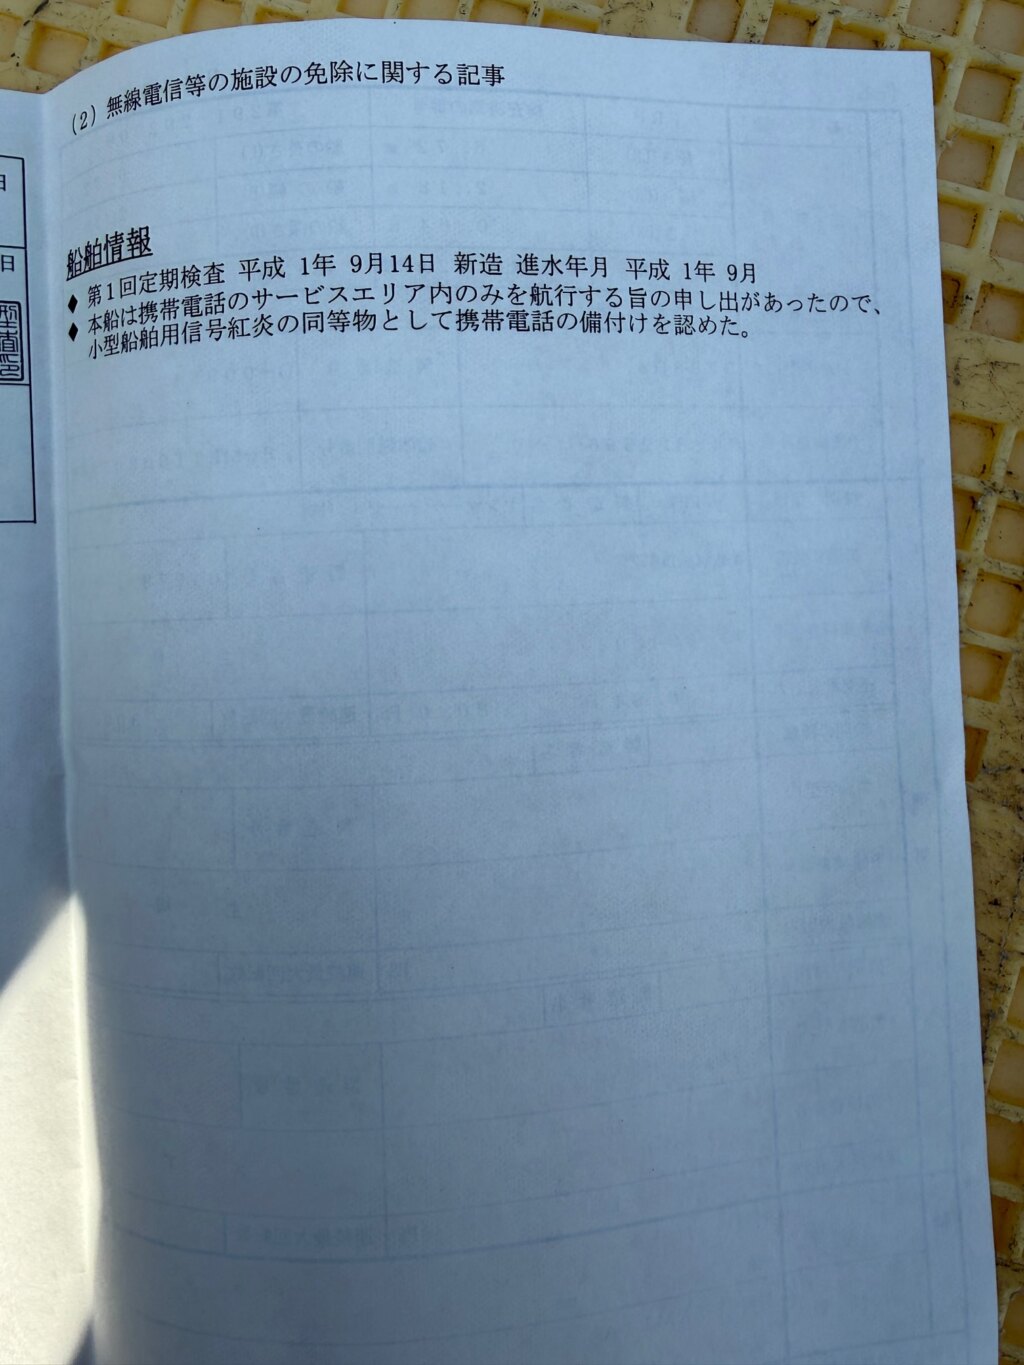 (2) 無線電信等の施設の免除に関する記事
船舶情報
◆ 第1回定期検査 平成 1年 9月14日 新造 進水年月 平成 1年 9月
◆ 本船は携帯電話のサービスエリア内のみを航行する旨の申し出があったので、
小型船舶用信号紅炎の同等物として携帯電話の備付けを認めた。
日
日